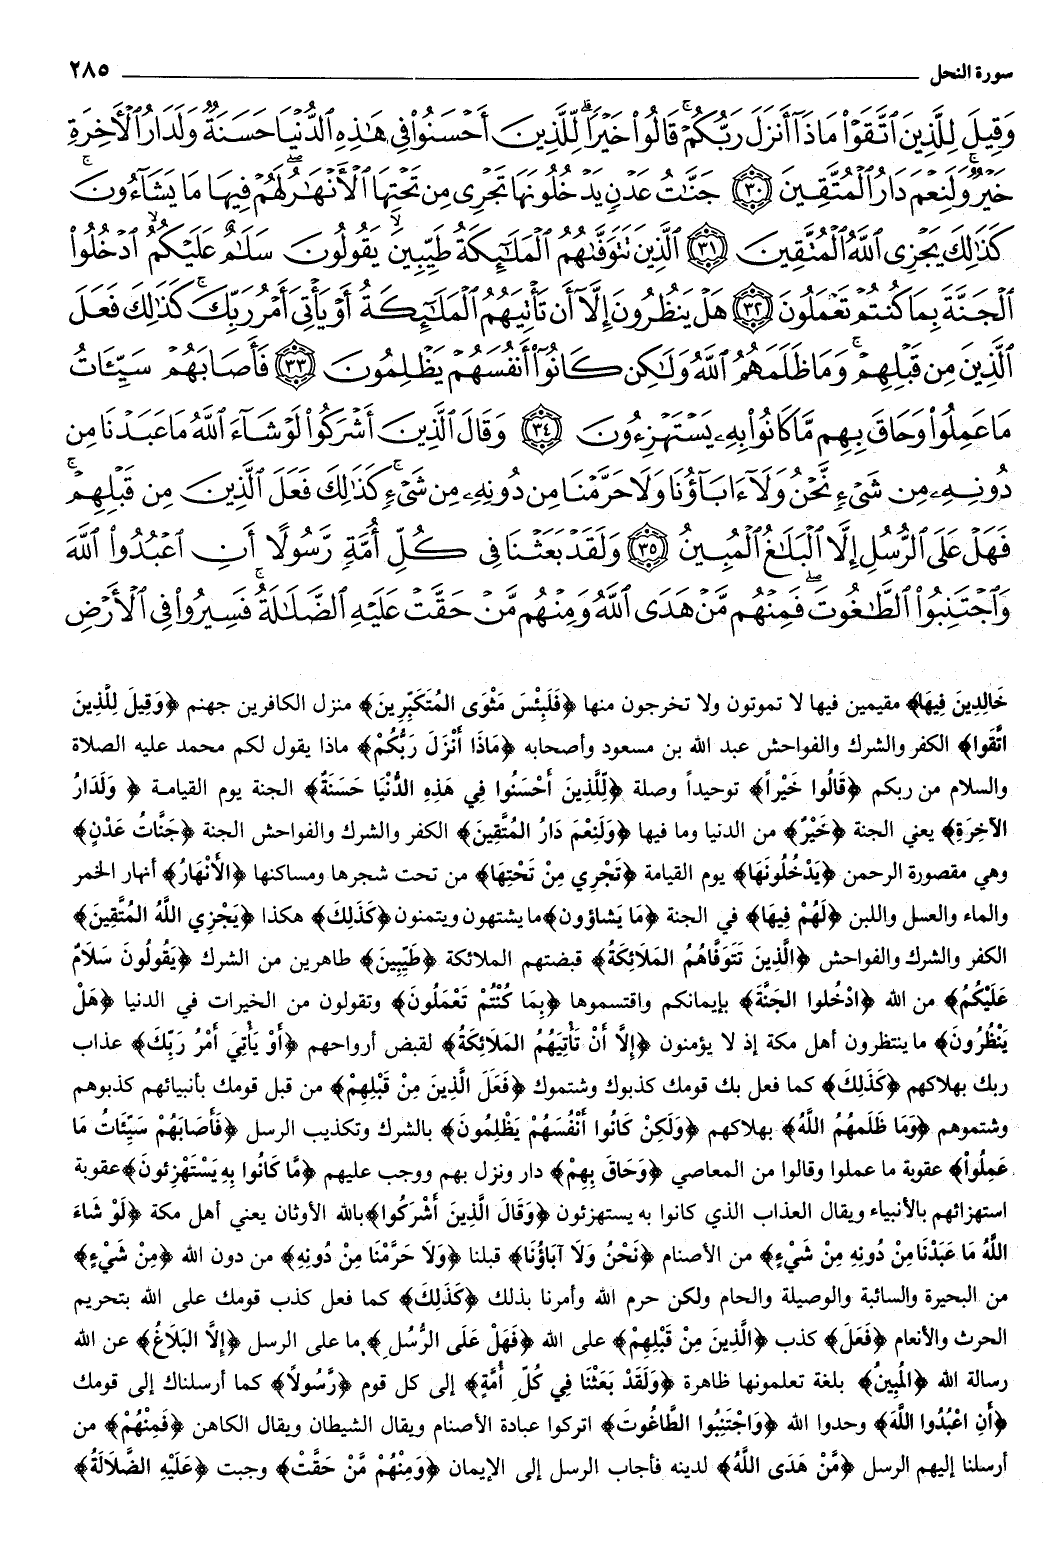 سورة النحل ٢٨٥
وَقِيلَ لِلَّذِينَ ٱتَّقَوْا۟ مَاذَآ أَنزَلَ رَبُّكُمْ ۚ قَالُوا۟ خَيْرًا ۗ لِّلَّذِينَ أَحْسَنُوا۟ فِى هَٰذِهِ ٱلدُّنْيَا حَسَنَةٌ ۚ وَلَدَارُ ٱلْأَخِرَةِ
خَيْرٌ ۚ وَلَنِعْمَ دَارُ ٱلْمُتَّقِينَ ٣٠ جَنَّٰتُ عَدْنٍ يَدْخُلُونَهَا تَجْرِى مِن تَحْتِهَا ٱلْأَنْهَٰرُ ۖ لَهُمْ فِيهَا مَا يَشَآءُونَ ۚ
كَذَٰلِكَ يَجْزِى ٱللَّهُ ٱلْمُتَّقِينَ ٣١ ٱلَّذِينَ تَتَوَفَّىٰهُمُ ٱلْمَلَٰٓئِكَةُ طَيِّبِينَ ۙ يَقُولُونَ سَلَٰمٌ عَلَيْكُمُ ۙ ٱدْخُلُوا۟
ٱلْجَنَّةَ بِمَا كُنتُمْ تَعْمَلُونَ ٣٢ هَلْ يَنظُرُونَ إِلَّآ أَن تَأْتِيَهُمُ ٱلْمَلَٰٓئِكَةُ أَوْ يَأْتِىَ أَمْرُ رَبِّكَ ۚ كَذَٰلِكَ فَعَلَ
ٱلَّذِينَ مِن قَبْلِهِمْ ۚ وَمَا ظَلَمَهُمُ ٱللَّهُ وَلَٰكِن كَانُوٓا۟ أَنفُسَهُمْ يَظْلِمُونَ ٣٣ فَأَصَابَهُمْ سَيِّئَاتُ
مَا عَمِلُوا۟ وَحَاقَ بِهِم مَّا كَانُوا۟ بِهِۦ يَسْتَهْزِءُونَ ٣٤ وَقَالَ ٱلَّذِينَ أَشْرَكُوا۟ لَوْ شَآءَ ٱللَّهُ مَا عَبَدْنَا مِن
دُونِهِۦ مِن شَىْءٍ نَّحْنُ وَلَآ ءَابَآؤُنَا وَلَا حَرَّمْنَا مِن دُونِهِۦ مِن شَىْءٍ ۚ كَذَٰلِكَ فَعَلَ ٱلَّذِينَ مِن قَبْلِهِمْ ۚ
فَهَلْ عَلَى ٱلرُّسُلِ إِلَّا ٱلْبَلَٰغُ ٱلْمُبِينُ ٣٥ وَلَقَدْ بَعَثْنَا فِى كُلِّ أُمَّةٍ رَّسُولًا أَنِ ٱعْبُدُوا۟ ٱللَّهَ
وَٱجْتَنِبُوا۟ ٱلطَّٰغُوتَ ۖ فَمِنْهُم مَّنْ هَدَى ٱللَّهُ وَمِنْهُم مَّنْ حَقَّتْ عَلَيْهِ ٱلضَّلَٰلَةُ ۚ فَسِيرُوا۟ فِى ٱلْأَرْضِ
خَالِدِينَ فِيهَا﴾ مقيمين فيها لا تموتون ولا تخرجون منها ﴿فَلَبِئْسَ مَثْوَى المُتَكَبِّرِينَ﴾ منزل الكافرين جهنم ﴿وَقِيلَ لِلَّذِينَ
اتَّقَوا﴾ الكفر والشرك والفواحش عبد الله بن مسعود وأصحابه ﴿مَاذَا أَنْزَلَ رَبُّكُمْ﴾ ماذا يقول لكم محمد عليه الصلاة
والسلام من ربكم ﴿قَالُوا خَيْراً﴾ توحيداً وصلة ﴿لِلَّذِينَ أَحْسَنُوا فِي هَذِهِ الدُّنْيَا حَسَنَةٌ﴾ الجنة يوم القيامة ﴿ وَلَدَارُ
الآخِرَةِ﴾ يعني الجنة ﴿خَيْرٌ﴾ من الدنيا وما فيها ﴿وَلَنِعْمَ دَارُ المُتَّقِينَ﴾ الكفر والشرك والفواحش الجنة ﴿جَنَّاتُ عَدْنٍ﴾
وهي مقصورة الرحمن ﴿يَدْخُلُونَهَا﴾ يوم القيامة ﴿تَجْرِي مِنْ تَحْتِهَا﴾ من تحت شجرها ومساكنها ﴿الأَنْهَارُ﴾ أنهار الخمر
والماء والعسل واللبن ﴿لَهُمْ فِيهَا﴾ في الجنة ﴿مَا يَشَاؤون﴾ ما يشتهون ويتمنون ﴿كَذَلِكَ﴾ هكذا ﴿يَجْزِي اللَّهُ المُتَّقِينَ﴾
الكفر والشرك والفواحش ﴿الَّذِينَ تَتَوَفَّاهُمُ المَلائِكَةُ﴾ قبضتهم الملائكة ﴿طَيِّبِينَ﴾ طاهرين من الشرك ﴿يَقُولُونَ سَلَامٌ
عَلَيْكُمُ﴾ من الله ﴿ادْخُلوا الجَنَّةَ﴾ بإيمانكم واقتسموها ﴿بِمَا كُنْتُمْ تَعْمَلُونَ﴾ وتقولون من الخيرات في الدنيا ﴿هَلْ
يَنْظُرُونَ﴾ ما ينتظرون أهل مكة إذ لا يؤمنون ﴿إِلَّا أَنْ تَأْتِيَهُمُ المَلَائِكَةُ﴾ لقبض أرواحهم ﴿أَوْ يَأْتِيَ أَمْرُ رَبِّكَ﴾ عذاب
ربك بهلاكهم ﴿كَذَلِكَ﴾ كما فعل بك قومك كذبوك وشتموك ﴿فَعَلَ الَّذِينَ مِنْ قَبْلِهِمْ﴾ من قبل قومك بأنبيائهم كذبوهم
وشتموهم ﴿وَمَا ظَلَمهُمُ اللَّهُ﴾ بهلاكهم ﴿وَلَكِنْ كَانُوا أَنْفُسَهُمْ يَظْلِمُونَ﴾ بالشرك وتكذيب الرسل ﴿فَأَصَابَهُمْ سَيِّئَاتُ مَا
عَمِلُواْ﴾ عقوبة ما عملوا وقالوا من المعاصي ﴿وَحَاقَ بِهِمْ﴾ دار ونزل بهم ووجب عليهم ﴿مَّا كَانُوا بِهِ يَسْتَهْزِئونَ﴾ عقوبة
استهزائهم بالأنبياء ويقال العذاب الذي كانوا به يستهزئون ﴿وَقَالَ الَّذِينَ أَشْرَكُوا﴾ بالله الأوثان يعني أهل مكة ﴿لَوْ شَاءَ
اللَّهُ مَا عَبَدْنَا مِنْ دُونِهِ مِنْ شَيْءٍ﴾ من الأصنام ﴿نَحْنُ وَلَا آبَاؤُنَا﴾ قبلنا ﴿وَلَا حَرَّمْنَا مِنْ دُونِهِ﴾ من دون الله ﴿مِنْ شَيْءٍ﴾
من البحيرة والسائبة والوصيلة والحام ولكن حرم الله وأمرنا بذلك ﴿كَذَلِكَ﴾ كما فعل كذب قومك على الله بتحريم
الحرث والأنعام ﴿فَعَلَ﴾ كذب ﴿الَّذِينَ مِنْ قَبْلِهِمْ﴾ على الله ﴿فَهَلْ عَلَى الرُّسُلِ﴾ ما على الرسل ﴿إِلَّا البَلَاغُ﴾ عن الله
رسالة الله ﴿المُبِينُ﴾ بلغة تعلمونها ظاهرة ﴿وَلَقَدْ بَعَثْنَا فِي كُلِّ أُمَّةٍ﴾ إلى كل قوم ﴿رَّسُولاً﴾ كما أرسلناك إلى قومك
﴿أَنِ اعْبُدُوا اللَّهَ﴾ وحدوا الله ﴿وَاجْتَنِبُوا الطَّاغُوتَ﴾ اتركوا عبادة الأصنام ويقال الشيطان ويقال الكاهن ﴿فَمِنْهُمْ﴾ من
أرسلنا إليهم الرسل ﴿مَّنْ هَدَى اللَّهُ﴾ لدينه فأجاب الرسل إلى الإيمان ﴿وَمِنْهُمْ مَّنْ حَقَّتْ﴾ وجبت ﴿عَلَيْهِ الضَّلَالَةُ﴾